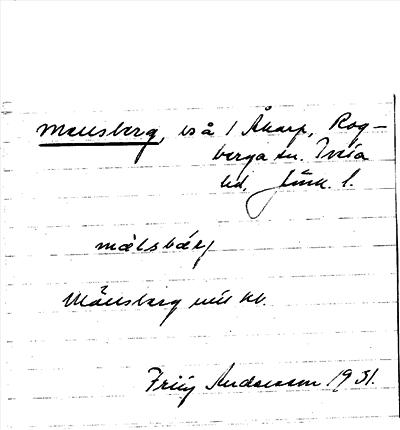 Månsberg, rå / Åkarp, Rog-
berga sn. Tveta
hd, Jönk. l.
månsbærj
Månsberg
Frits Andersson 1931.